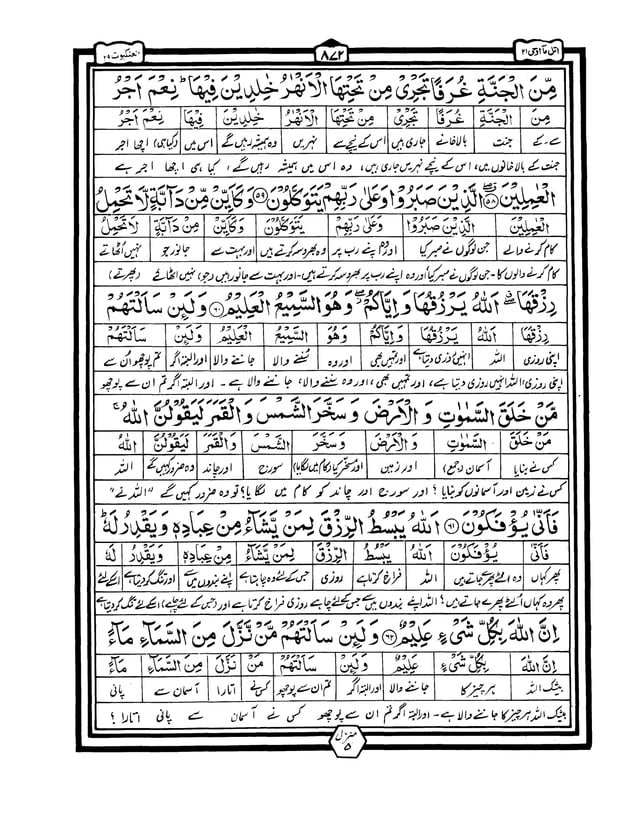 اتل ما اوحی ۲۱
۸۷۲
العنکبوت ۲۹
مِّنَ الْجَنَّةِ غُرَفًا تَجْرِیْ مِنْ تَحْتِهَا الْاَنْهٰرُ خٰلِدِیْنَ فِیْهَا ؕ نِعْمَ اَجْرُ
مِنَ الْجَنَّةِ غُرَفًا تَجْرِیْ مِنْ تَحْتِهَا الْاَنْهٰرُ خٰلِدِیْنَ فِیْهَا نِعْمَ اَجْرُ
سے۔ کے جنت بالاخانے جاری ہیں اس کے نیچے سے نہریں وہ ہمیشہ رہیں گے اس میں (کیا ہی) اچھا اجر
جنت کے بالاخانوں میں، اس کے نیچے نہریں جاری ہیں، وہ اس میں ہمیشہ رہیں گے، کیا ہی اچھا اجر ہے
الْعٰمِلِیْنَ ﴿۵۸﴾ الَّذِیْنَ صَبَرُوْا وَعَلٰی رَبِّهِمْ یَتَوَكَّلُوْنَ ﴿۵۹﴾ وَكَاَیِّنْ مِّنْ دَآبَّةٍ لَّا تَحْمِلُ
الْعٰمِلِیْنَ الَّذِیْنَ صَبَرُوْا وَعَلٰی رَبِّهِمْ یَتَوَكَّلُوْنَ وَكَاَیِّنْ مِنْ دَآبَّةٍ لَا تَحْمِلُ
کام کرنے والے جن لوگوں نے صبر کیا اور اپنے رب پر وہ بھروسہ کرتے ہیں اور بہت سے جانور جو نہیں اٹھاتے
کام کرنے والوں کا۔ جن لوگوں نے صبر کیا اور وہ اپنے رب پر بھروسہ کرتے ہیں۔ اور بہت سے جانور ہیں (جو) نہیں اٹھائے (پھرتے)
رِزْقَهَا ۖ اَللّٰهُ یَرْزُقُهَا وَاِیَّاكُمْ ۖ وَهُوَ السَّمِیْعُ الْعَلِیْمُ ﴿۶۰﴾ وَلَىِٕنْ سَاَلْتَهُمْ
رِزْقَهَا اَللّٰهُ یَرْزُقُهَا وَاِیَّاكُمْ وَهُوَ السَّمِیْعُ الْعَلِیْمُ وَلَىِٕنْ سَاَلْتَهُمْ
اپنی روزی اللہ انہیں روزی دیتا ہے اور تمہیں بھی اور وہ سننے والا جاننے والا اور البتہ اگر تم پوچھو ان سے
اپنی روزی، اللہ انہیں روزی دیتا ہے، اور تمہیں بھی، اور وہ سننے والا، جاننے والا ہے۔ اور البتہ اگر تم ان سے پوچھو
مَّنْ خَلَقَ السَّمٰوٰتِ وَ الْاَرْضَ وَسَخَّرَ الشَّمْسَ وَ الْقَمَرَ لَیَقُوْلُنَّ اللّٰهُ ۚ
مَنْ خَلَقَ السَّمٰوٰتِ وَالْاَرْضَ وَسَخَّرَ الشَّمْسَ وَالْقَمَرَ لَیَقُوْلُنَّ اللّٰهُ
کس نے بنایا آسمان (جمع) اور زمین اور مسخر کیا (کام میں لگایا) سورج اور چاند وہ ضرور کہیں گے اللہ
کس نے زمین اور آسمانوں کو بنایا؟ اور سورج اور چاند کو کام میں لگایا؟ تو وہ ضرور کہیں گے "اللہ نے"
فَاَنّٰی یُؤْفَكُوْنَ ﴿۶۱﴾ اَللّٰهُ یَبْسُطُ الرِّزْقَ لِمَنْ یَّشَآءُ مِنْ عِبَادِهٖ وَیَقْدِرُ لَهٗ ؕ
فَاَنّٰی یُؤْفَكُوْنَ اَللّٰهُ یَبْسُطُ الرِّزْقَ لِمَنْ یَّشَآءُ مِنْ عِبَادِهٖ وَیَقْدِرُ لَهٗ
پھر کہاں وہ الٹے پھرے جاتے ہیں اللہ فراخ کرتا ہے روزی جس کے لئے وہ چاہتا ہے اپنے بندوں میں سے اور تنگ کر دیتا ہے اسکے لئے
پھر وہ کہاں الٹے پھرے جاتے ہیں؟ اللہ اپنے بندوں میں سے جس کے لئے چاہے روزی فراخ کرتا ہے اور (جس کے لئے چاہے) اسکے لئے تنگ کر دیتا ہے
اِنَّ اللّٰهَ بِكُلِّ شَیْءٍ عَلِیْمٌ ﴿۶۲﴾ وَلَىِٕنْ سَاَلْتَهُمْ مَّنْ نَّزَّلَ مِنَ السَّمَآءِ مَآءً
اِنَّ اللّٰهَ بِكُلِّ شَیْءٍ عَلِیْمٌ وَلَىِٕنْ سَاَلْتَهُمْ مَنْ نَزَّلَ مِنَ السَّمَآءِ مَآءً
بیشک اللہ ہر چیز کا جاننے والا اور البتہ اگر تم ان سے پوچھو کس نے اتارا آسمان سے پانی
بیشک اللہ ہر چیز کا جاننے والا ہے۔ اور البتہ اگر تم ان سے پوچھو کس نے آسمان سے پانی اتارا؟
منزل
۵